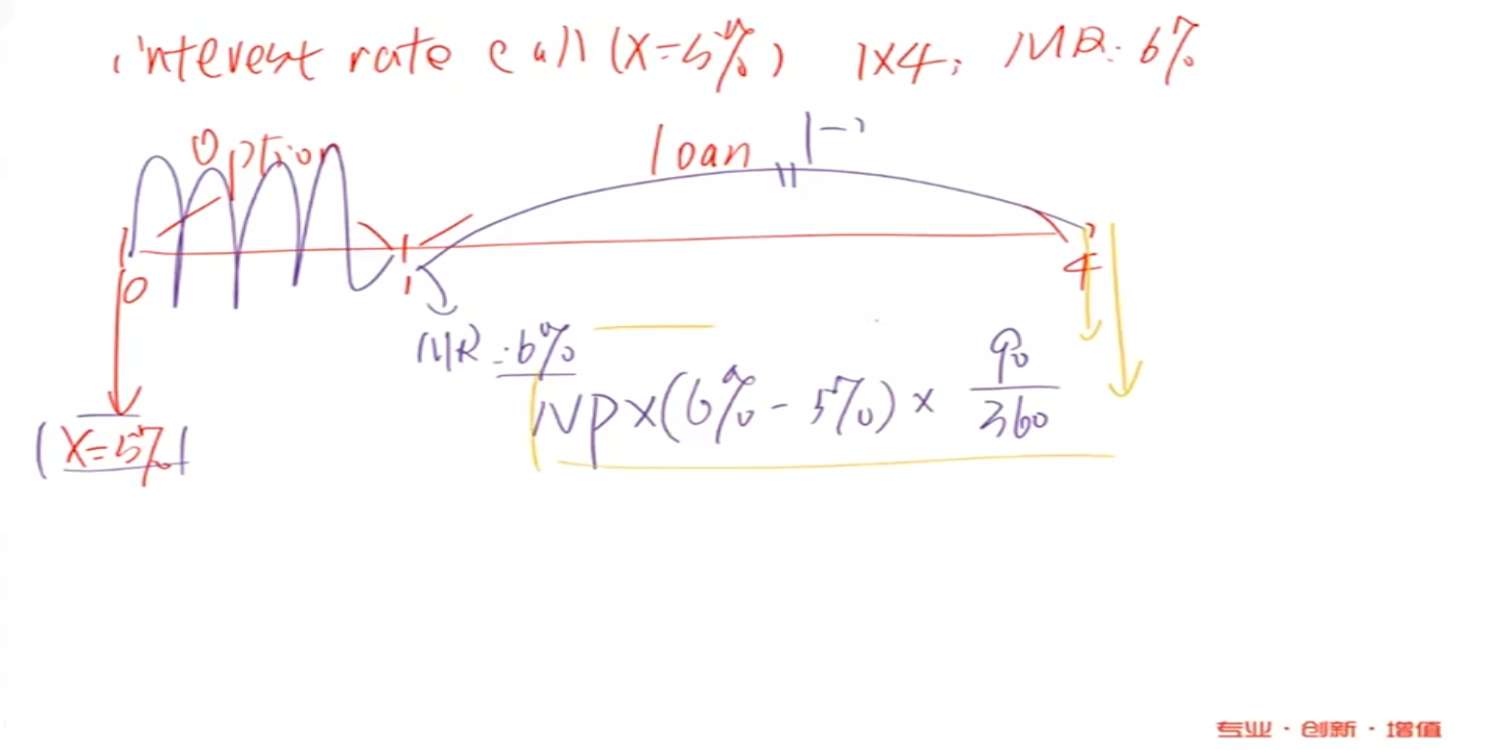 interest rate call (X=5%) 1×4, MR: 6%
Option
loan
0
1
4
MR = 6%
(X=5%)
NP×(6%-5%)× 90/360
专业·创新·增值